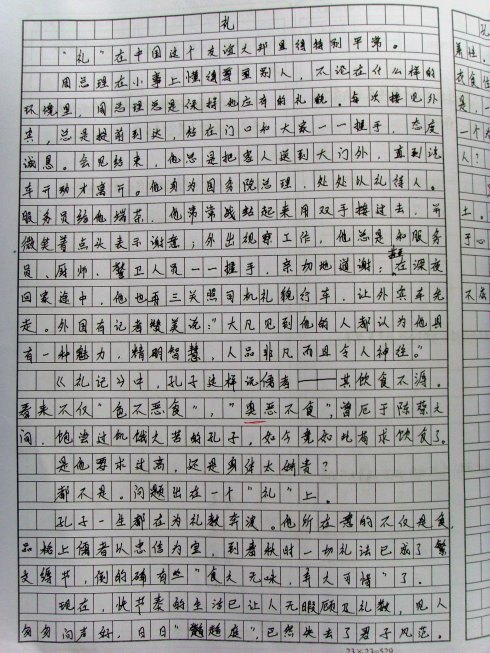 礼
"礼"在中国这个友谊大邦显得特别平常。
周总理在小事上懂得尊重别人，不论在什么样的
环境里，周总理总是保持他应有的礼貌。每次接见外
宾，总是提前到达，站在门口和大家一一握手，态度
诚恳。会见结束，他总是把客人送到大门外，直到汽
车开动才离开。他身为国务院总理，处处以礼待人。
服务员给他端茶，他常常战起来用双手接过去，并
微笑着点头表示谢意；外出视察工作，他总是和服务
员、厨师、警卫人员一一握手，亲切地道谢；在深夜
回家途中，他也再三关照司机礼貌行车，让外宾车先
走。外国有记者赞美说："大凡见到他的人都认为他具
有一种魅力，精明智慧，人品非凡而且令人神往。"
《礼记》中，孔子这样说儒者——其饮食不溽。
看来不仅"色不恶食"，"臭恶不食"，曾厄于陈蔡之
间，饱尝过饥饿之苦的孔子，如今竟如此有求饮食了。
是他要求过高，还是身体太娇贵？
都不是。问题出在一个"礼"上。
孔子一生都在为礼教奔波。他所在意的不仅是食
品格上儒者以忠信为宝，到春秋时一切礼法已成了繁
文缛节，倒的确有些"食之无味，弃之可惜"了。
现在，快节奏的生活已让人无暇顾及礼数，见人
匆匆问声好，日日"趋庭"，已然失去了君子风范。
23×23=529